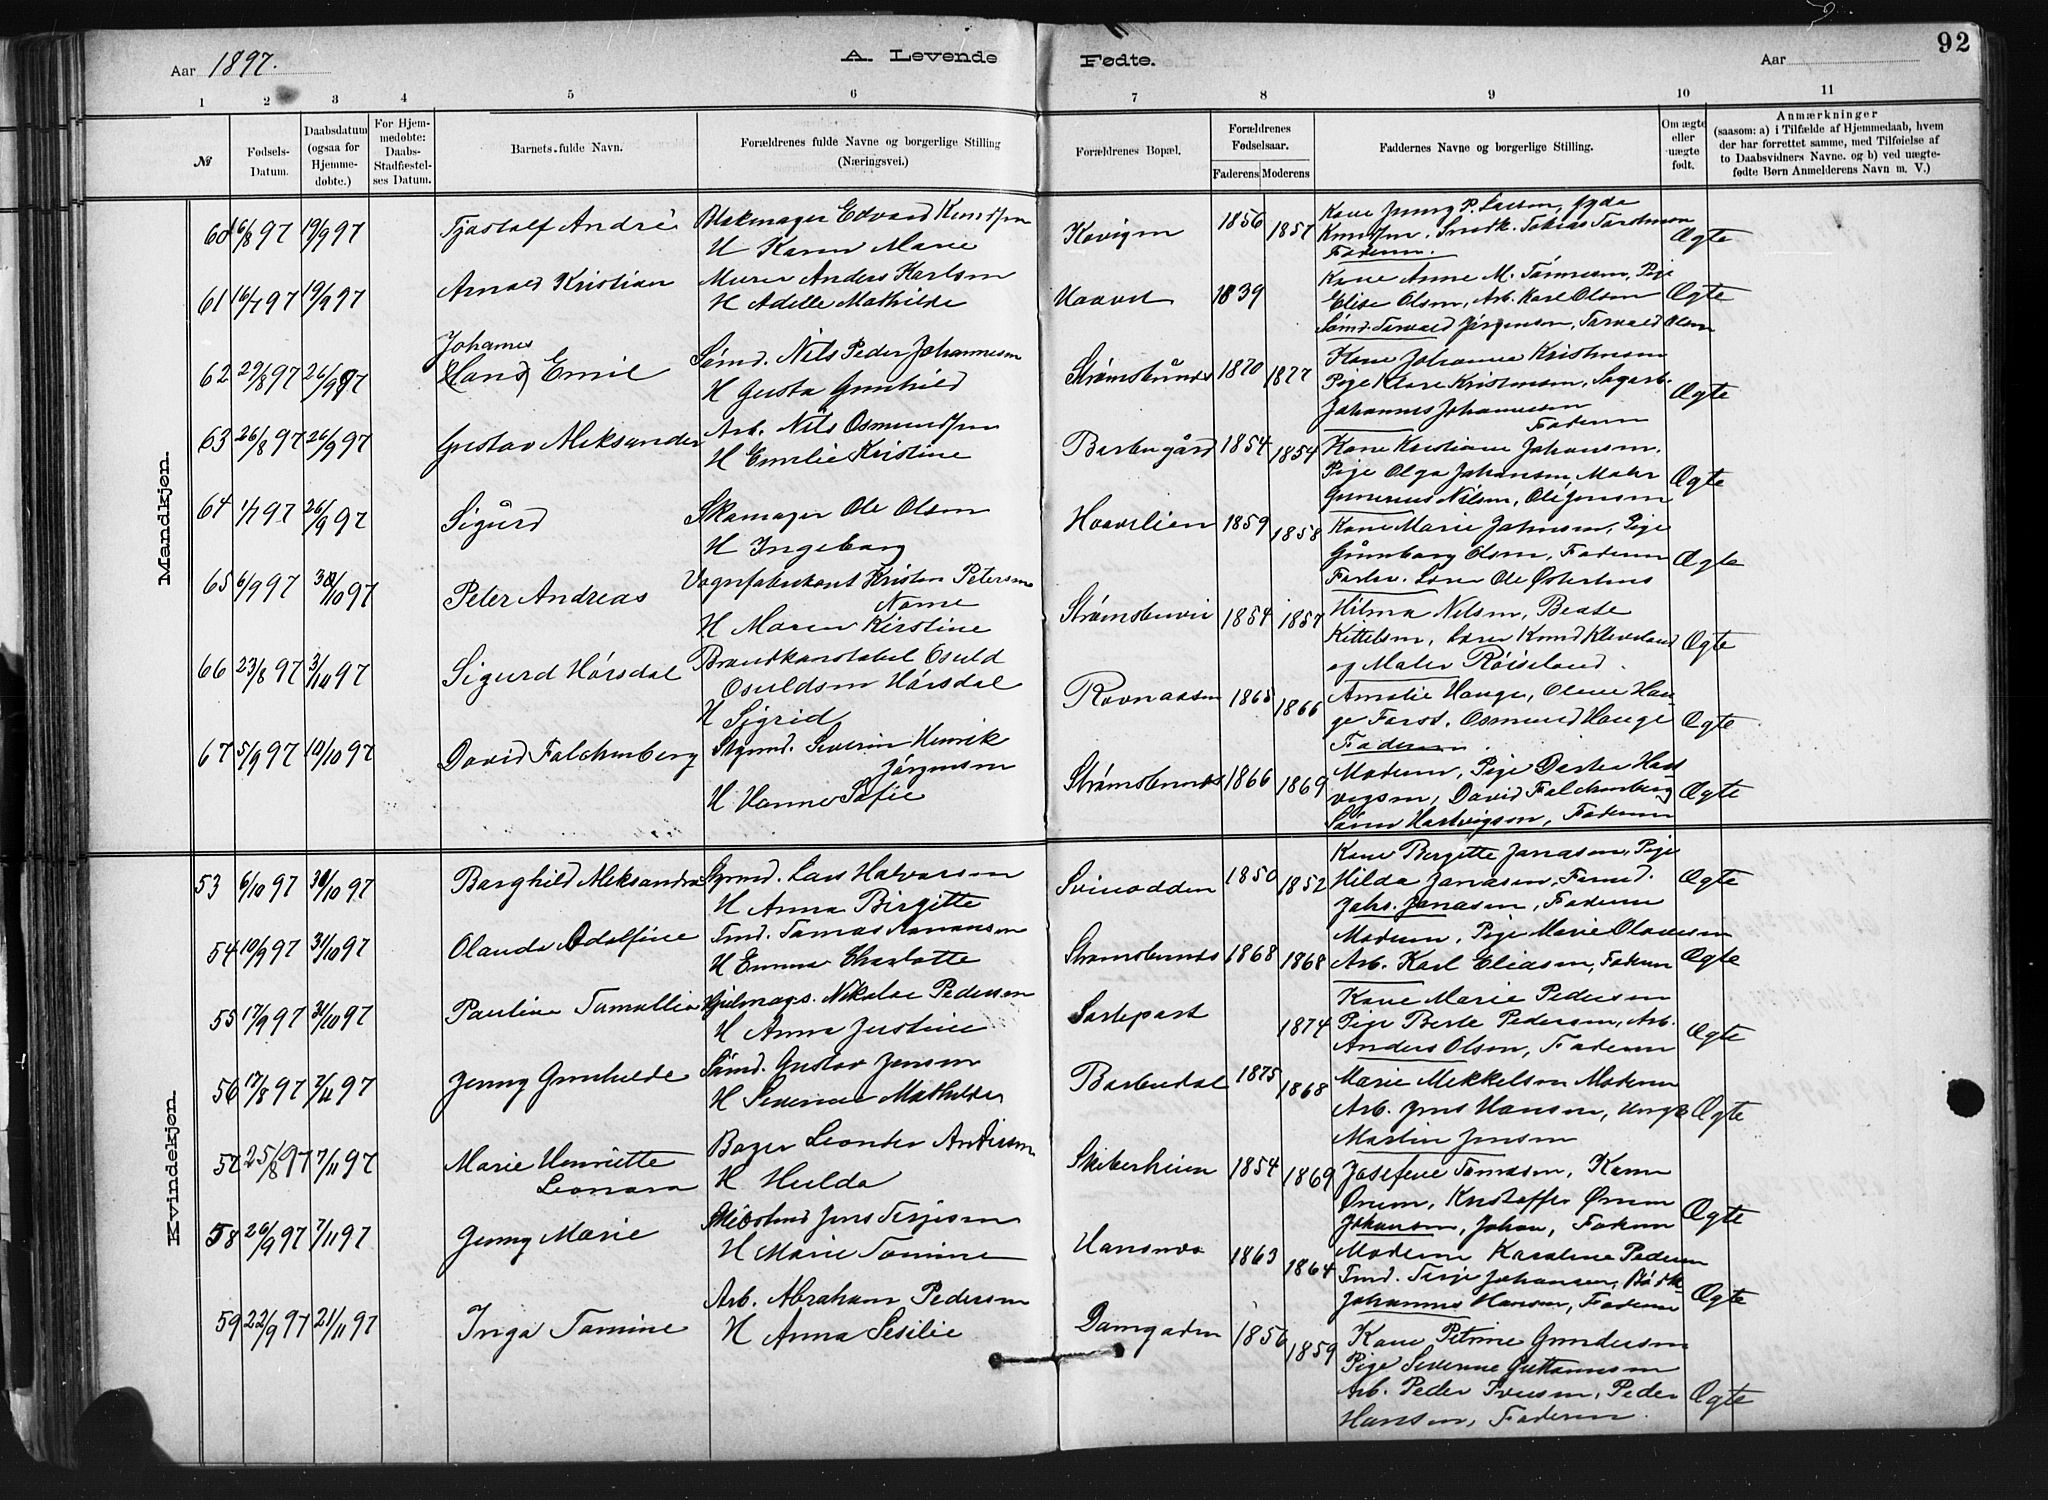 Aar 1897.
A. Levende
Fødte.
Aar
92
1 2 3 4 5 6 7 8 9 10 11
№
Fødsels-
Datum.
Daabsdatum
(ogsaa for
Hjemme-
døbte.)
For Hjem-
medøbte:
Daabs-
Stadfæstel-
ses Datum.
Barnets fulde Navn.
Forældrenes fulde Navne og borgerlige Stilling
(Næringsvei.)
Forældrenes Bopæl.
Forældrenes
Fødselsaar.
Faderens
Moderens
Faddernes Navne og borgerlige Stilling.
Om ægte
eller
uægte
født.
Anmærkninger
(saasom: a) i Tilfælde af Hjemmedaab, hvem
der har forrettet samme, med Tilføielse af
to Daabsvidners Navne. og b) ved uægte-
fødte Børn Anmelderens Navn m. V.)
Mandkjøn.
60 6/8 97 19/9 97 Tjøstolf André
H Karen Marie
1856 1857
Faderen.
Ægte
61 16/7 97 19/9 97 Arnold Kristian Murer Anders Karlsen
H Adelle Mathilde
1839
Kone Anne M. Tønnesen, Pige
Elise Olsen, Arb. Karl Olsen
Sømd. Torvald Jørgensen, Torvald Olsen
Ægte
62 29/8 97 26/9 97 Johannes
Hans Emil
Sømd. Nils Peder Johannesen
H Gusta Gunhild
Strømsbunes 1870 1877
Kone Johanne Kristensen
Pige Klare Kristensen, Sagarb.
Johannes Johannesen
Faderen
Ægte
63 26/8 97 26/9 97 Gustav Aleksander Arb. Nils Osmundsen
H Emilie Kristine
Barbugård 1854 1854
Kone Kristiane Johansen,
Pige Olga Johansen, Maler
Gunerius Nilsen, Ole Jensen
Ægte
64 1/7 97 26/9 97 Sigurd Skomager Ole Olsen
H Ingeborg
Haavelien 1859 1858
Kone Marie Johnsen, Pige
Gunnborg Olsen, Faderen
Ægte
65 6/9 97 3/10 97 Peter Andreas Vognfabrikant Kristen Petersen
Name
H Maren Kirstine
Strømsbuvei 1854 1857
Hilma Nilsen, Beate
Kittelsen, Lærer Knud Kleveland
og Maler Røiseland.
Ægte
66 23/8 97 3/10 97 Sigurd Hørsdal Brandkonstabel Osuld
Osuldsen Hørsdal
H Sigrid
Ravnaasen 1865 1866
Amalie Hauge, Oline Hau-
ge Forst. Osmund Hauge
Faderen.
Ægte
67 5/9 97 10/10 97 David Falchenberg
Severin Henrik
Jørgensen
H Hanne Sofie
Strømsbunes 1866 1869
Moderen, Pige Dorthe Hart
vigsen, David Falchenberg
Søren Hartvigsen, Faderen
Ægte
Kvindekjøn.
53 6/10 97 31/10 97 Borghild Aleksandra Lars Halvorsen
H Anna Birgitte
Svinodden 1850 1852
Kone Bergitte Jonasen, Pige
Hilda Jonasen,
Johs. Jonasen, Faderen
Ægte
54 10/9 97 31/10 97 Olanda Adolfine Tmd. Tomas
H Emma Charlotte
Strømsbunes 1868 1868
Moderen, Pige Marie Olavesen
Arb. Karl Eliasen, Faderen
Ægte
55 17/9 97 31/10 97 Pauline Tomallie Nikolai Pedersen
H Anna Justine
1874
Kone Marie Pedersen
Pige Berte Pedersen, Arb.
Anders Olsen, Faderen
Ægte
56 17/8 97 7/11 97 Jenny Gunhilde Sømd. Gustav Jensen
H Severine Mathilde
Barbudal 1875 1868
Marie Mikkelsen Moderen
Arb. Jens Hansen, Ungk
Martin Jensen
Ægte
57 25/8 97 7/11 97 Marie Henriette
Leonora
Bager Leonder Andersen
H Hulda
Skiberheien 1854 1869
Josefine Tomasen, Karen
Ørum, Kristoffer Ørum
Johansen, Johan, Faderen
Ægte
58 26/9 97 7/11 97 Jenny Marie
Jens Terjesen
H Marie Tomine
Hansnes 1863 1864
Moderen Karoline Pedersen
Tmd. Terje Johansen, Bødk
Johannes Hansen, Faderen
Ægte
59 22/9 97 21/11 97 Inga Tomine Arb. Abraham Pedersen
H Anna Sesilie
Damgaden 1856 1859
Kone Petrine Gundersen
Pige Severine Guttormsen
Arb. Peder Iversen, Peder
Hansen, Faderen.
Ægte